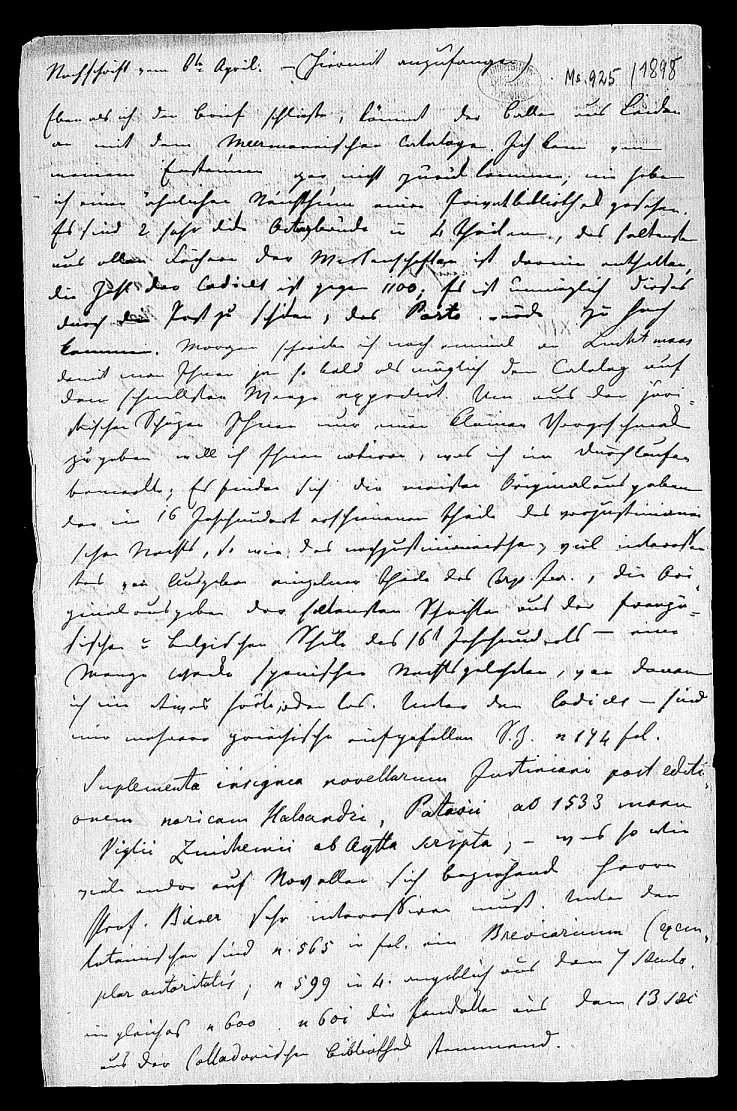 Nachschrift vom 8t April. – (Hiermit anzufangen)
Ms. 925 / 1898
Eben als ich den Brief schließe, kömmt der Ballen aus Leiden
an mit dem Meermannischen Cataloge. Ich kann von
meinem Erstaunen gar nicht zurück kommen, nie habe
ich einen ähnlichen Reichthum einer Privatbibliothek gesehen.
Es sind 2 sehr dicke Octavbände in 4 Theilen, das seltenste
aus allen Fächern der Wissenschaften ist darin enthalten,
die Zahl der Codices ist gegen 1100; Es ist unmöglich dieses
durch die Post zu schicken, das Porto würde zu hoch
kommen. Morgen schreibe ich noch einmal an Luchtmans
damit man Ihnen ja so bald als möglich den Catalog auf
dem schnellsten Wege expedirt. Um aus den juri-
stischen Schäzen Ihnen nur einen kleinen Vorgeschmack
zu geben will ich Ihnen notiren, was ich im Durchlaufen
bemerkte; Es finden sich die meisten Originalausgaben
der im 16 Jahrhundert erschienenen Theile des vorjustiniani
schen Rechts, so wie des nachjustinianischen, viel interessan
tes von Ausgaben einzelner Theile des Corp. Jur., die Ori
ginalausgaben der seltensten Schriften aus der französi-
sischen u belgischen Schule des 16t Jahrhunderts – eine
Menge spanischer Rechtsgelehrten, von denen
ich nie etwas hörte, oder las. Unter den Codices – sind
mir mehrere griechische aufgefallen Z.B. n 174 fol.
Suplementa insignia novellarum Justiniani post editi-
onem noricam Haloandri, Patavii ab 1533 manu
Viglii Zuichemii ab Aytta scripta, – was so wie
viele andre auf Novellen sich beziehend Herrn
Prof. Biener sehr interessiren muß. Unter den
lateinischen sind n. 565 in fol. ein Breviarium (exem-
plar autoritatis, n 599 in 4. angeblich aus dem 7 Saeculo.
ingleichen n 600 n 601 die Pandekten aus dem 13 Sec
aus der Bibliothek stammend.